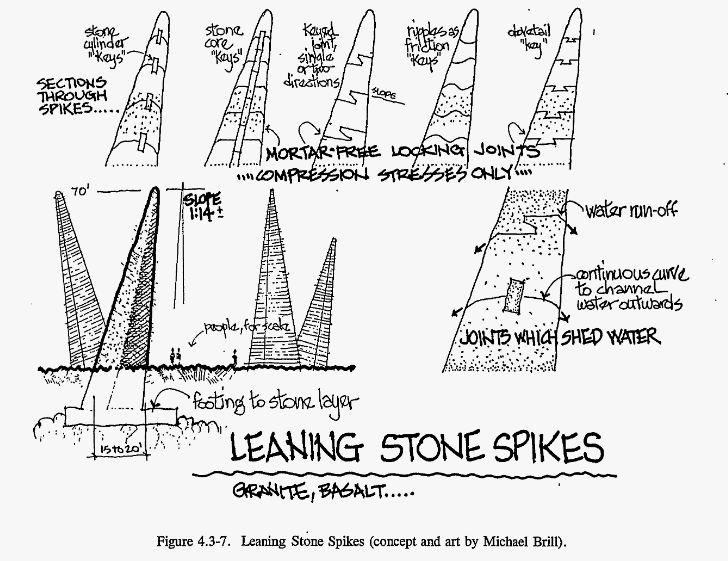 stone
cylinder
"keys"
stone
core
"keys"
Keyed
joint,
single
or two
directions
ripples as
friction
"keys"
dovetail
"key"
SLOPE
SECTIONS
THROUGH
SPIKES.....
MORTAR-FREE LOCKING JOINTS
""COMPRESSION STRESSES ONLY""
70'
SLOPE
1:14 ±
people, for scale
water run-off
continuous curve
to channel
water outwards
JOINTS WHICH SHED WATER
footing to stone layer
15 to 20'
LEANING STONE SPIKES
GRANITE, BASALT.....
Figure 4.3-7. Leaning Stone Spikes (concept and art by Michael Brill).